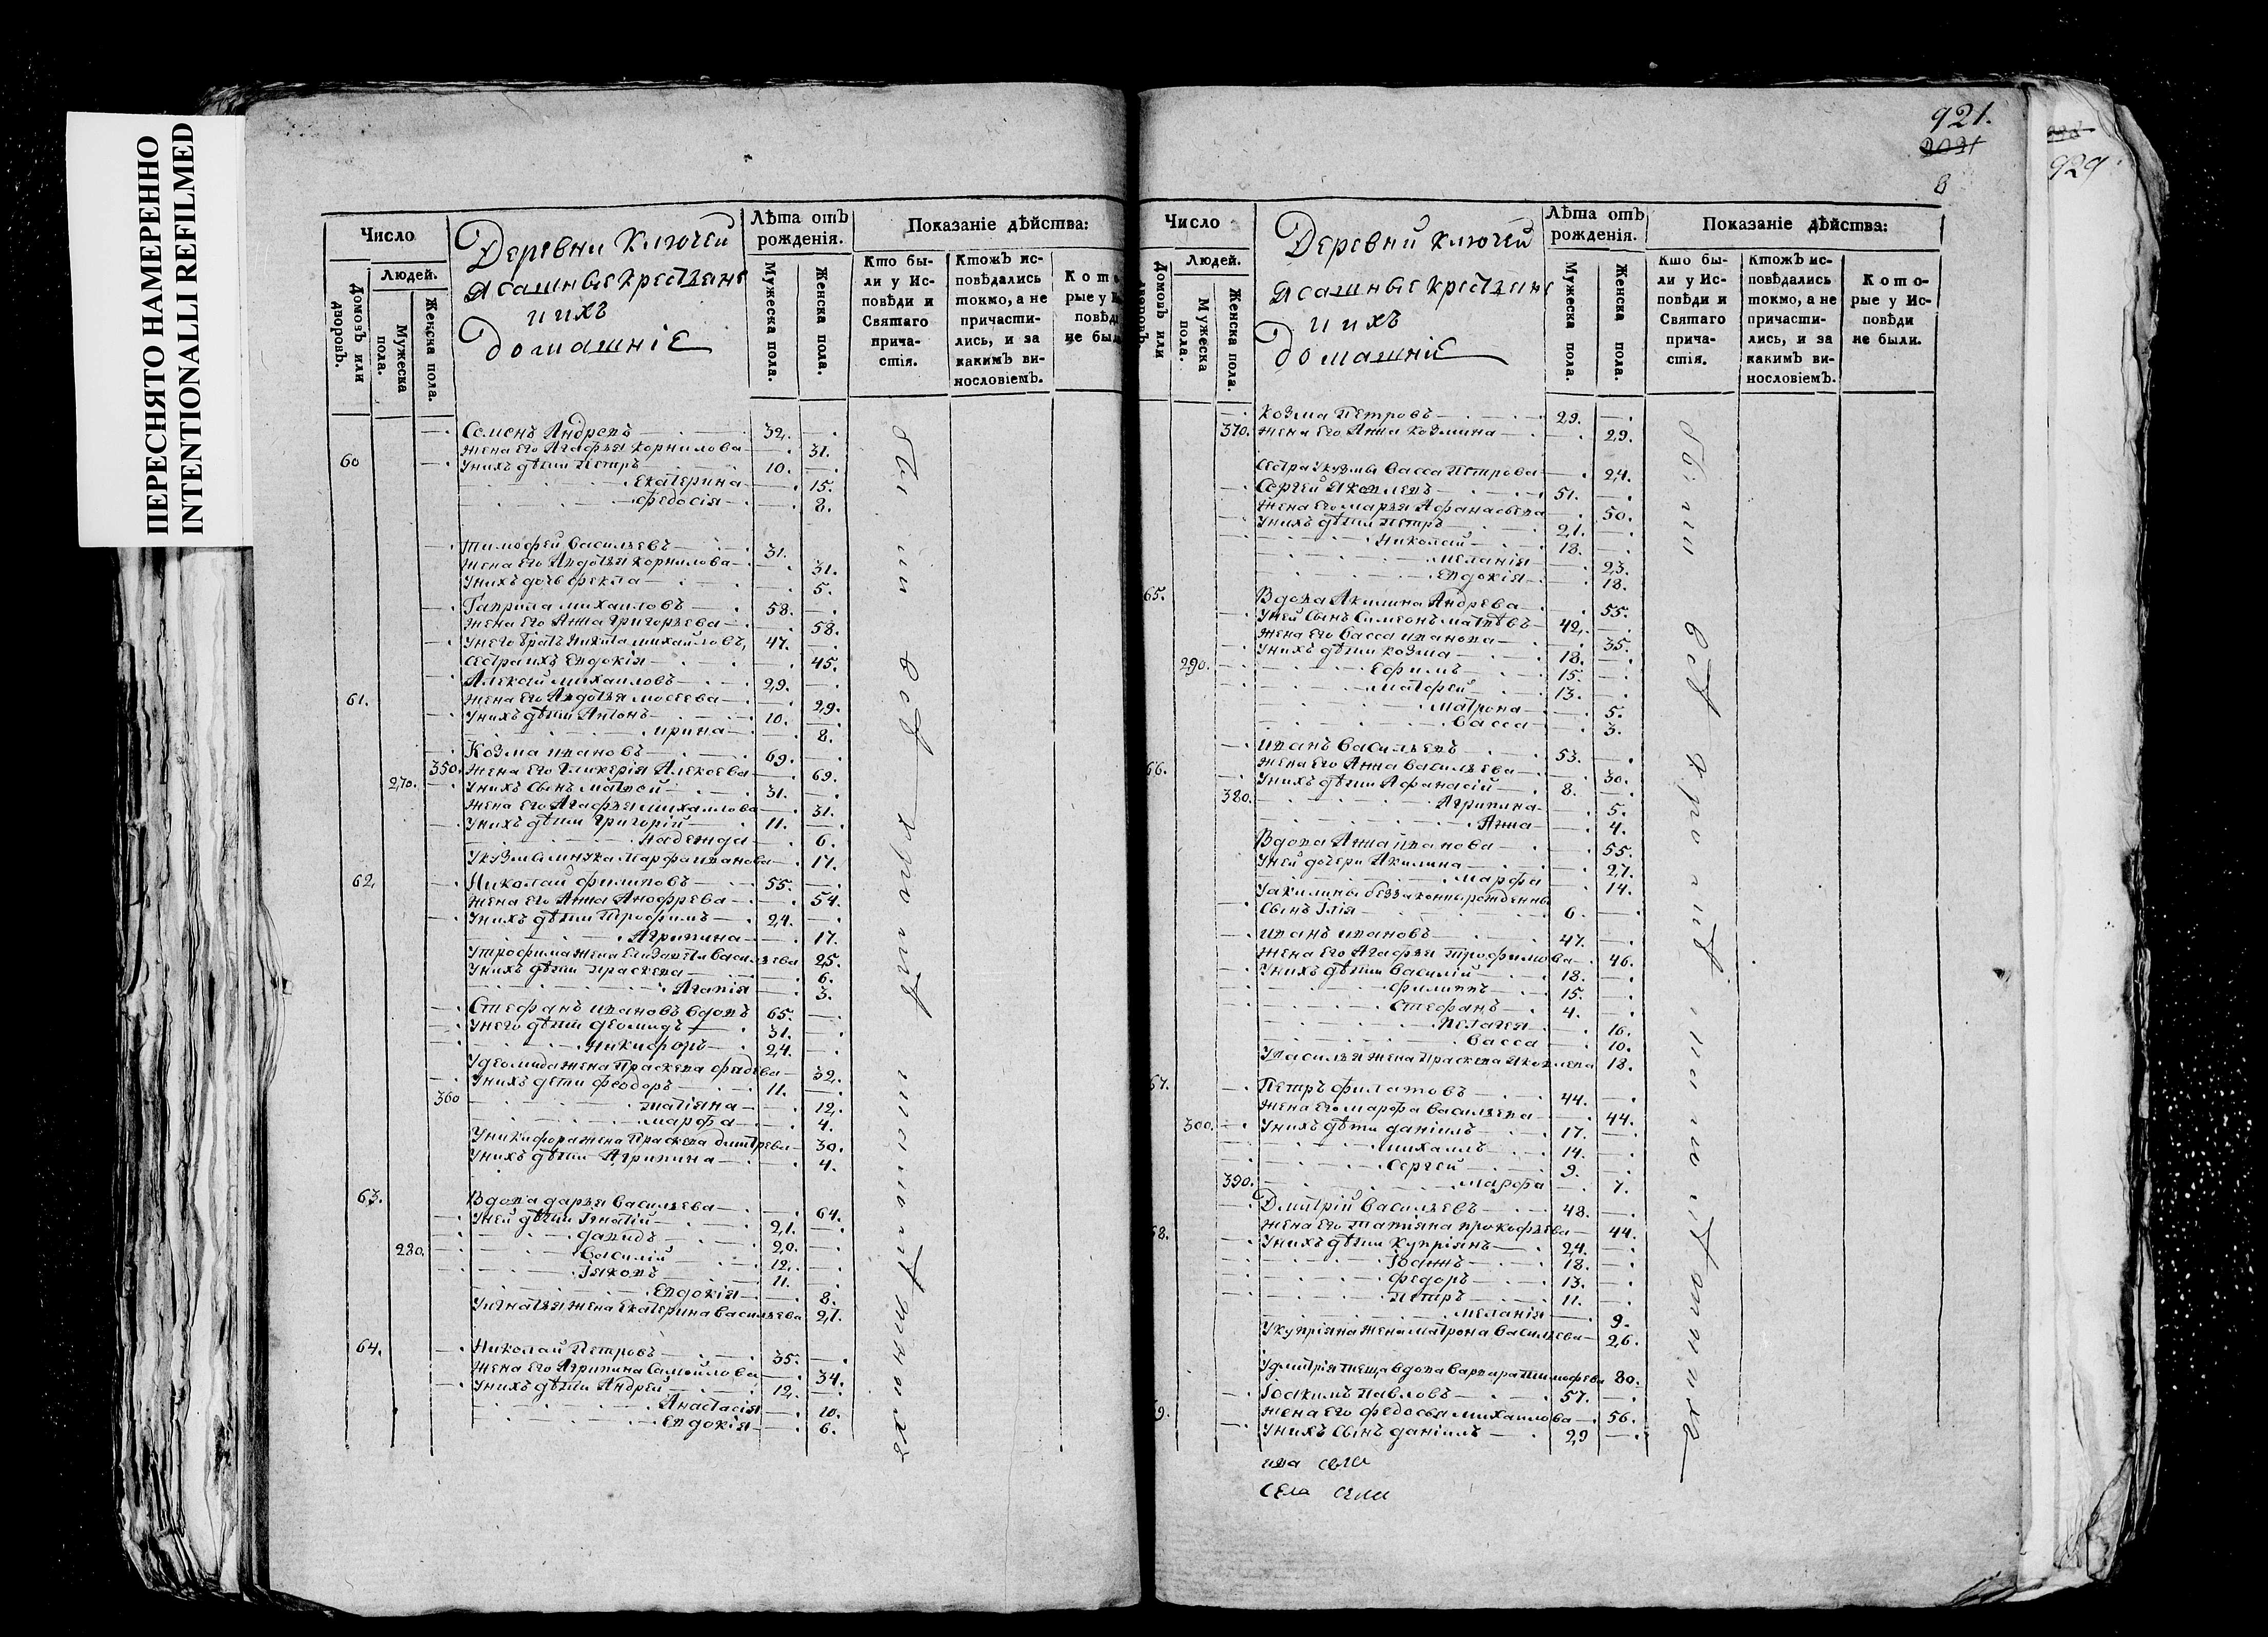 ПЕРЕСНЯТО НАМЕРЕННО
INTENTIONALLI REFILMED
Число
Людей.
Домовъ или дворовъ.
Мужеска пола.
Женска пола.
Деревни Ключей
Ясашные крестьяне
и ихъ
домашніе
Лѣта отъ рожденія.
Мужеска пола.
Женска пола.
Показаніе дѣйства:
Кто бы-
ли у Ис-
повѣди и
Святаго
прича-
стія.
Ктожъ ис-
повѣдались
токмо, а не
причасти-
лись, и за
какимъ ви-
нословіемъ.
Кото
рые у И
повѣди
не был
Семенъ Андреевъ 32.
жена его Агафья Корнилова 31.
60 У нихъ дѣти Петръ 10.
Екатерина 15.
Федосія 8.
Тимофей Васильевъ 31.
жена его Авдотья Корнилова 31.
У нихъ дочь Фекла 5.
Гаврила Михаиловъ 58.
жена его Анна Григорьева 58.
У него братъ Никита Михайловъ, 47.
сестра ихъ Евдокія 45.
Алексѣй Михаиловъ 29.
61. жена его Авдотья Мосеева 29.
У нихъ дѣти Антонъ 10.
Ирина 8.
Козма Ивановъ 69.
350. жена его Гликерія Алексева 69.
270. У нихъ сынъ Матвей 31.
жена его Агафья Михаилова 31.
У нихъ дѣти Григорій 11.
Надежда 6.
У Кузмы внука Марфа Иванова 17.
62. Николай Филиповъ 55.
жена его Анна Анофрева 54.
У нихъ дѣти Трофимъ 24.
Агрипина 17.
У Трофима жена Елизавета Васильева 25.
У нихъ дѣти Праскева 6.
Агапія 3.
Стефанъ Ивановъ вдовъ 65.
У него дѣти Деомидъ 31.
Никифоръ 24.
У Деомида жена Праскева Фадеева 32.
У нихъ дети Феодоръ 11.
360 Татіяна 12.
Марфа 4.
У Никифора жена Праскева Дмитрева 30.
У нихъ дѣти Агрипина 4.
63. Вдова Дарья Васильева 64.
У ней дѣти Игнатій 21.
Давидъ 20.
280. Василій 12.
Іяковъ 11.
Евдокія 8.
У Игнатья жена Екатерина Васильева 21.
64. Николай Петровъ 35.
жена его Агрипина Самойлова 34.
У нихъ дѣти Андрей 12.
Анастасія 10.
Евдокія 6.
921.
2021
8
929
Число
Людей.
Домовъ или дворовъ.
Мужеска пола.
Женска пола.
Деревни Ключей
Ясашные крестьяне
и ихъ
домашніе
Лѣта отъ рожденія.
Мужеска пола.
Женска пола.
Показаніе дѣйства:
Кто бы-
ли у Ис-
повѣди и
Святаго
прича-
стія.
Ктожъ ис-
повѣдались
токмо, а не
причасти-
лись, и за
какимъ ви-
нословіемъ.
Кото-
рые у Ис-
повѣди
не были.
Козма Петровъ 29.
370. жена его Анна Козмина 29.
сестра у Кузмы Васса Петрова 24.
Сергей Яковлевъ 51.
жена его Марья Афанасьева 50.
У нихъ дѣти Петръ 21.
Николай 18.
Меланія 23.
Евдокія 18.
65. Вдова Акилина Андрева 55.
У ней сынъ Симеонъ Матвѣевъ 42.
жена его Васса Иванова 35.
У нихъ дѣти Козма 18.
290. Ефимъ 15.
Матфей 13.
Матрона 5.
Васса 3.
Иванъ Васильевъ 53.
66. жена его Анна Васильева 30.
У нихъ дѣти Афанасій 8.
380. Агрипина 5.
Анна 4.
Вдова Анна Иванова 55.
У ней дочери Акилина 27.
Марфа 14.
У Акилины беззаконнорожденны
сынъ Ілія 6.
Иванъ Ивановъ 47.
жена его Агафья Трофимова 46.
У нихъ дѣти Василій 18.
Филиппъ 15.
Стефанъ 4.
Пелагея 16.
Васса 10.
У Василья жена Праскева Яковлева 18.
67. Петръ Филатовъ 44.
жена его Марфа Васильева 44.
300. У нихъ дѣти Даніилъ 17.
Михаилъ 14.
Сергей 9.
390. Марфа 7.
Дмитрій Васильевъ 48.
жена его Татіяна Прокофьева 44.
68. У нихъ дѣти Купріянъ 24.
Іоаннъ 18.
Федоръ 13.
Петръ 11.
Меланія 9.
У Купріяна жена Матрона Васильева 26.
У Дмитрія теща вдова Варвара Тимофева 80.
Іоакимъ Павловъ 57.
69. жена его Федосья Михаилова 56.
У нихъ сынъ Даніилъ 29
села